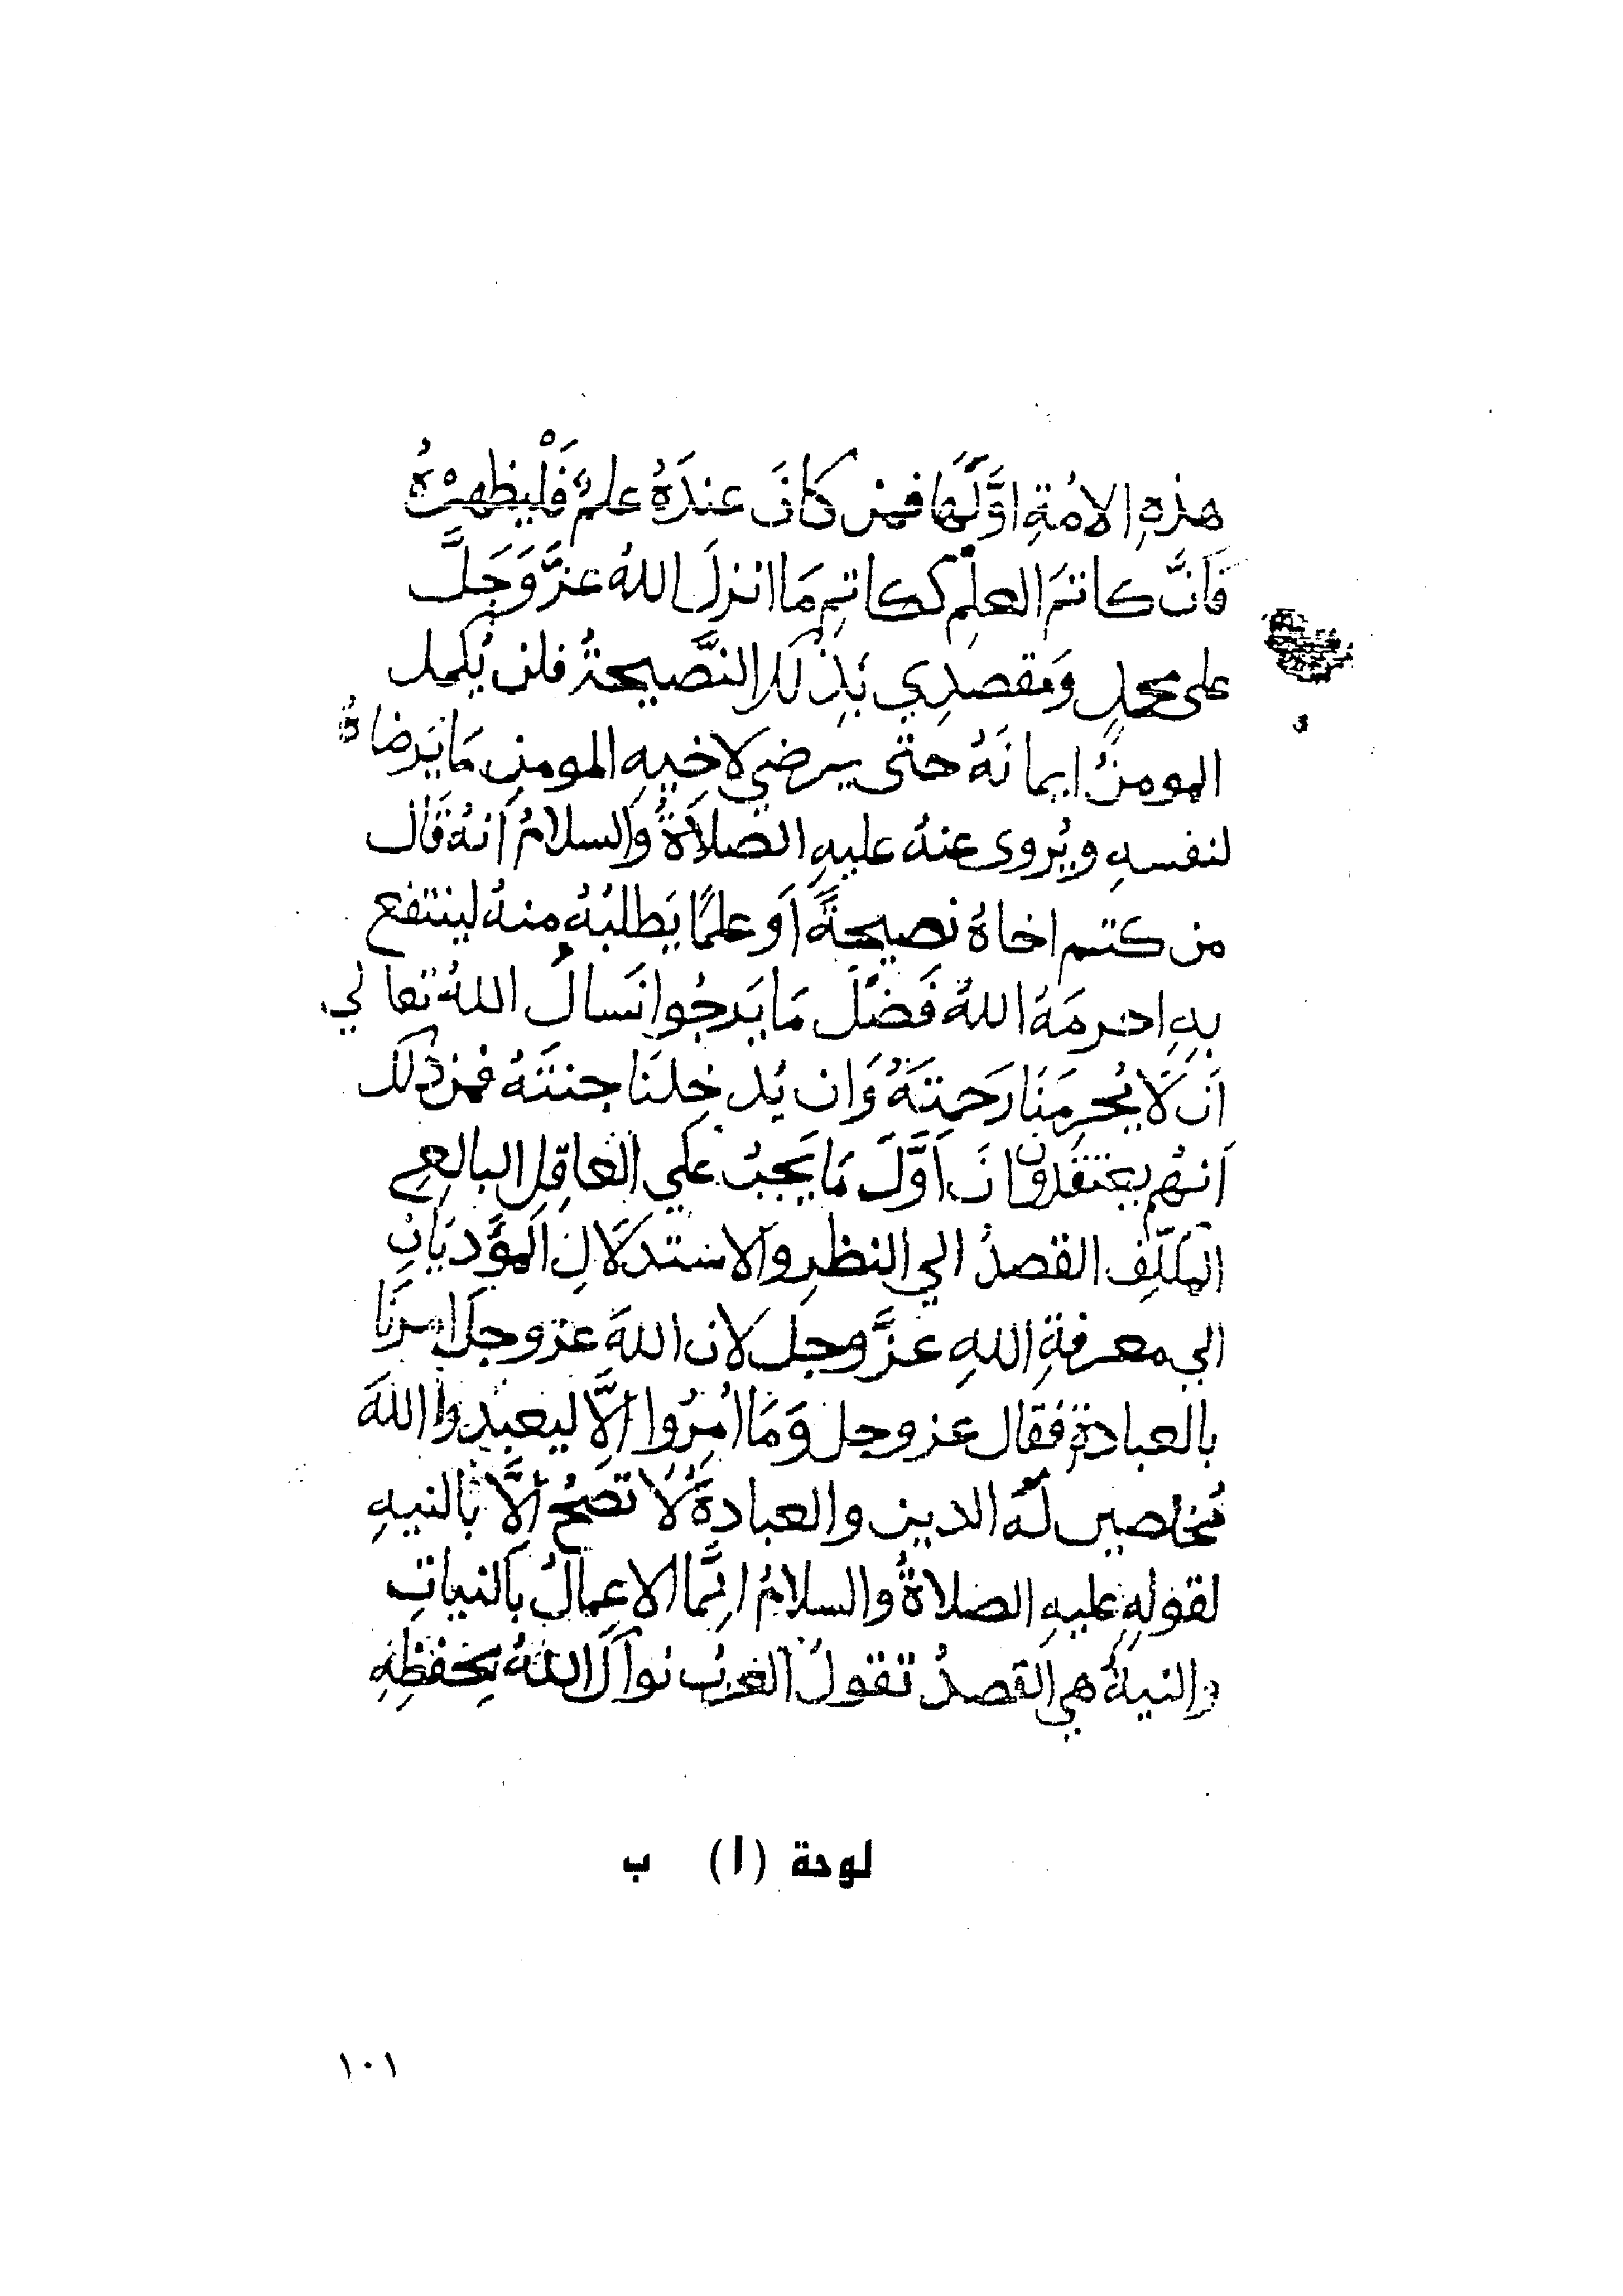 هذِهِ الامُةِ اوَّلَها فمن كانَ عندَهُ علمٌ فَلْيظهرْهُ
فَانَّ كاتمَ العلِمِ ككاتِمِ مَا انزلَ اللهُ عزَّ وَجَلَّ
على محمدٍ وَمقصدِي بَذِلكَ النَّصيحةُ فلن يُكمل
المومنُ ايمانَهُ حتى يرضي لاخِيهِ المومنِ مَا يَرضاهُ
لنفسهِ ويُروى عنهُ عليهِ الصَلاَةُ وَالسلامُ اَنهُ قَال
من كتم اخاهُ نصيحةً اَو علمًا يَطلبُهُ منهُ لينتفع
بهِ احرمَهُ اللهُ فَضلَ مَا يَرجُوا نَسالُ اللهُ تعالي
اَن لَا يُحرِمَنَا رَحمتَهُ وَان يُدخِلنَا جنتَهُ فمن ذلك
اَنهُم يعتقدون انَ اَوَّلَ مَا يَجبُ علَي العاقِلِ البالغِ
المكلَّفِ القصدُ الي النظرِ والاستدلَالِ المؤَدّيَانِ
الي معرفةِ اللهِ عزَّ وجل لان اللهَ عز وجلَ امرنَا
بالعبادةِ فقال عز وجل وَمَا اُمِرُوا اِلَّا ليعبدوا اللهَ
مُخلصين لَهُ الدين والعبادةُ لَا تصَحُ الَّا بالنيهِ
لقولهِ عليهِ الصلاةُ والسلامُ انَّما الاعمالُ بالنياتِ
والنيةُ هي القصدُ تقولُ العَربُ نواكَ اللهُ بحفظِهِ
لوحة (١) ب
١٠١